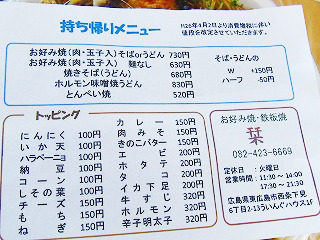 持ち帰りメニュー
H26年4月2日より消費増税に伴い
値段を改定させていただきます。
お好み焼(肉・玉子入)そばorうどん 730円
お好み焼(肉・玉子入) 麺なし 630円
焼きそば(うどん) 680円
ホルモン味噌焼うどん 830円
とんぺい焼 520円
そば・うどんの
W +150円
ハーフ -50円
トッピング
にんにく 100円
いか天 100円
ハラペーニョ 100円
納豆 100円
コーン 100円
しその葉 100円
チーズ 150円
もち 150円
ねぎ 150円
カレー 150円
肉みそ 150円
きのこバター 150円
エビ 200円
ホタテ 200円
タコ 200円
イカ下足 200円
牛すじ 300円
ホルモン 300円
辛子明太子 300円
お好み焼・鉄板焼
栞
082-423-6669
定休日 : 火曜日
営業時間 : 11:30 ~ 14:30
17:30 ~ 21:30
広島県東広島市西条下見
6丁目2-13ういんぐハウス1F